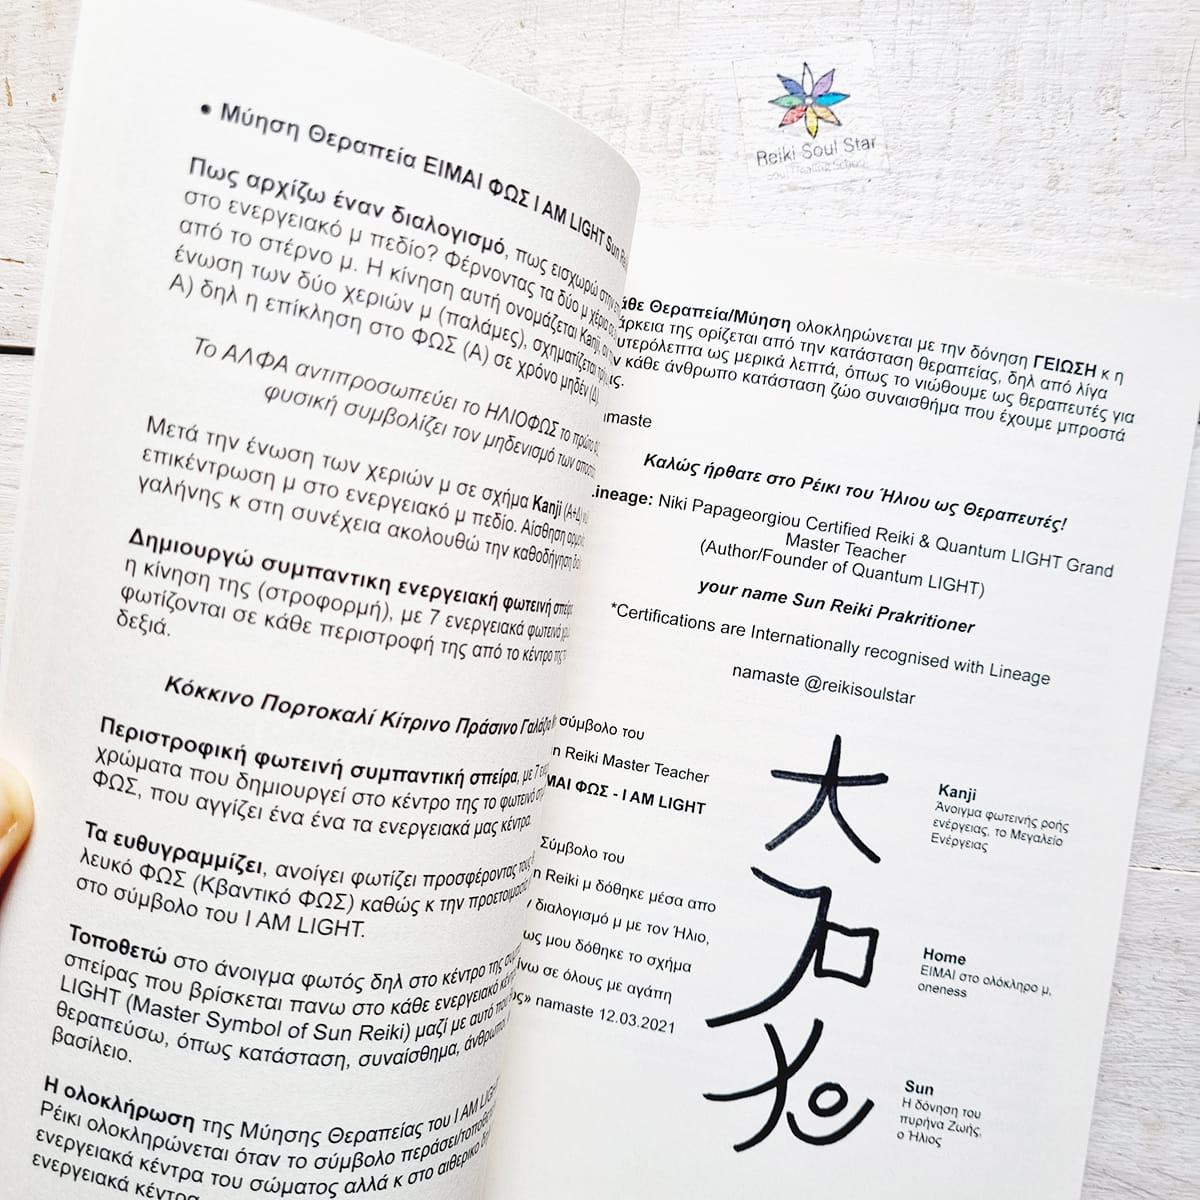 Reiki Soul Star
Soul Healing School
• Μύηση Θεραπεία ΕΙΜΑΙ ΦΩΣ I AM LIGHT Sun
Πως αρχίζω έναν διαλογισμό, πως εισχωρώ
στο ενεργειακό μ πεδίο? Φέρνοντας τα δύο μ χέρια
από το στέρνο μ. Η κίνηση αυτή ονομάζεται Kanji,
ένωση των δύο χεριών μ (παλάμες), σχηματίζεται
Α) δηλ η επίκληση στο ΦΩΣ (Α) σε χρόνο μηδέν (Δ)
Το ΑΛΦΑ αντιπροσωπεύει το ΗΛΙΟΦΩΣ το
φυσική συμβολίζει τον μηδενισμό των
Μετά την ένωση των χεριών μ σε σχήμα Kanji (Α+Δ)
επικέντρωση μ στο ενεργειακό μ πεδίο. Αίσθηση
γαλήνης κ στη συνέχεια ακολουθώ την καθοδήγηση
Δημιουργώ συμπαντικη ενεργειακή φωτεινή
η κίνηση της (στροφορμή), με 7 ενεργειακά φωτεινά
φωτίζονται σε κάθε περιστροφή της από το κέντρο της
δεξιά.
Κόκκινο Πορτοκαλί Κίτρινο Πράσινο Γαλάζιο
Περιστροφική φωτεινή συμπαντική σπείρα, με 7
χρώματα που δημιουργεί στο κέντρο της το φωτεινό
ΦΩΣ, που αγγίζει ένα ένα τα ενεργειακά μας κέντρα.
Τα ευθυγραμμίζει, ανοίγει φωτίζει προσφέροντας τους
λευκό ΦΩΣ (Κβαντικό ΦΩΣ) καθώς κ την προετοιμασία
στο σύμβολο του I AM LIGHT.
Τοποθετώ στο άνοιγμα φωτός δηλ στο κέντρο της
σπείρας που βρίσκεται πανω στο κάθε ενεργειακό
LIGHT (Master Symbol of Sun Reiki) μαζί με αυτό που
θεραπεύσω, όπως κατάσταση, συναίσθημα,
βασίλειο.
Η ολοκλήρωση της Μύησης Θεραπείας του I AM LIGHT
Ρέικι ολοκληρώνεται όταν το σύμβολο περάσει/τοποθετηθεί
ενεργειακά κέντρα του σώματος αλλά κ στο αιθερικό
ενεργειακά κέντρα
άθε Θεραπεία/Μύηση ολοκληρώνεται με την δόνηση ΓΕΙΩΣΗ κ η
άρκεια της ορίζεται από την κατάσταση θεραπείας, δηλ από λίγα
υτερόλεπτα ως μερικά λεπτά, όπως το νιώθουμε ως θεραπευτές για
ν κάθε άνθρωπο κατάσταση ζώο συναισθήμα που έχουμε μπροστά
ις.
amaste
Καλώς ήρθατε στο Ρέικι του Ήλιου ως Θεραπευτές!
Lineage: Niki Papageorgiou Certified Reiki & Quantum LIGHT Grand
Master Teacher
(Author/Founder of Quantum LIGHT)
your name Sun Reiki Prakritioner
*Certifications are Internationally recognised with Lineage
namaste @reikisoulstar
σύμβολο του
n Reiki Master Teacher
ΜΑΙ ΦΩΣ - I AM LIGHT
Σύμβολο του
n Reiki μ δόθηκε μέσα απο
διαλογισμό μ με τον Ήλιο,
ως μου δόθηκε το σχήμα
ίνω σε όλους με αγάπη
ς» namaste 12.03.2021
大
Kanji
Άνοιγμα φωτεινής ροής
ενέργειας, το Μεγαλείο
Ενέργειας
Home
ΕΙΜΑΙ στο ολόκληρο μ,
oneness
Sun
Η δόνηση του
πυρήνα Ζωής,
ο Ήλιος